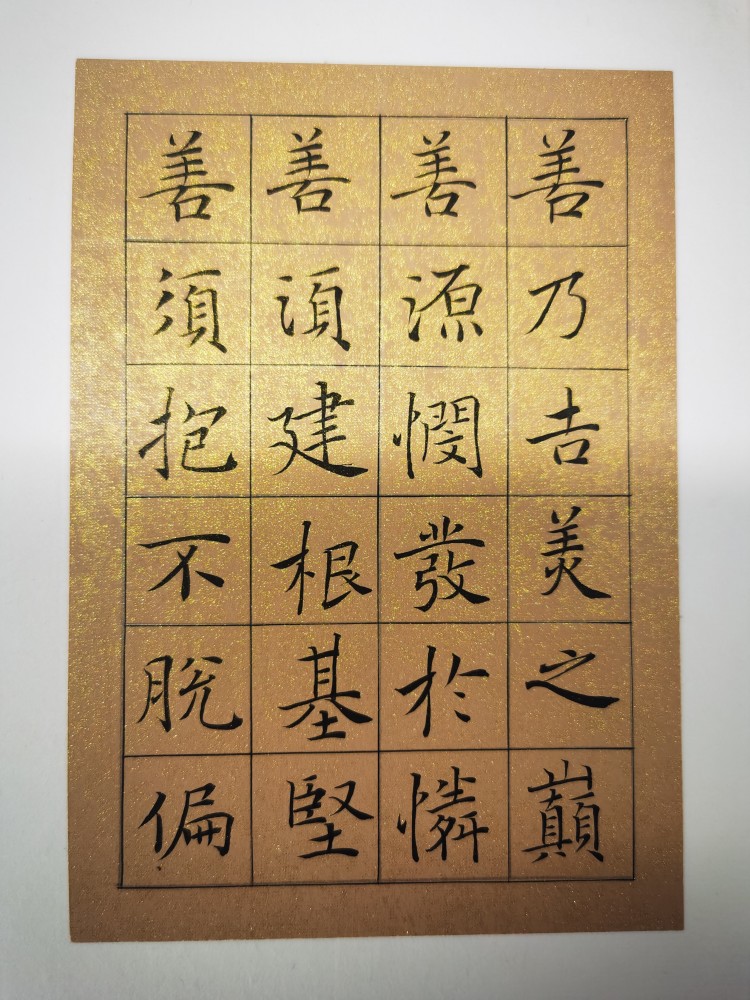 善乃吉美之巔
善源憫發於憐
善須建根基堅
善須抱不脫偏